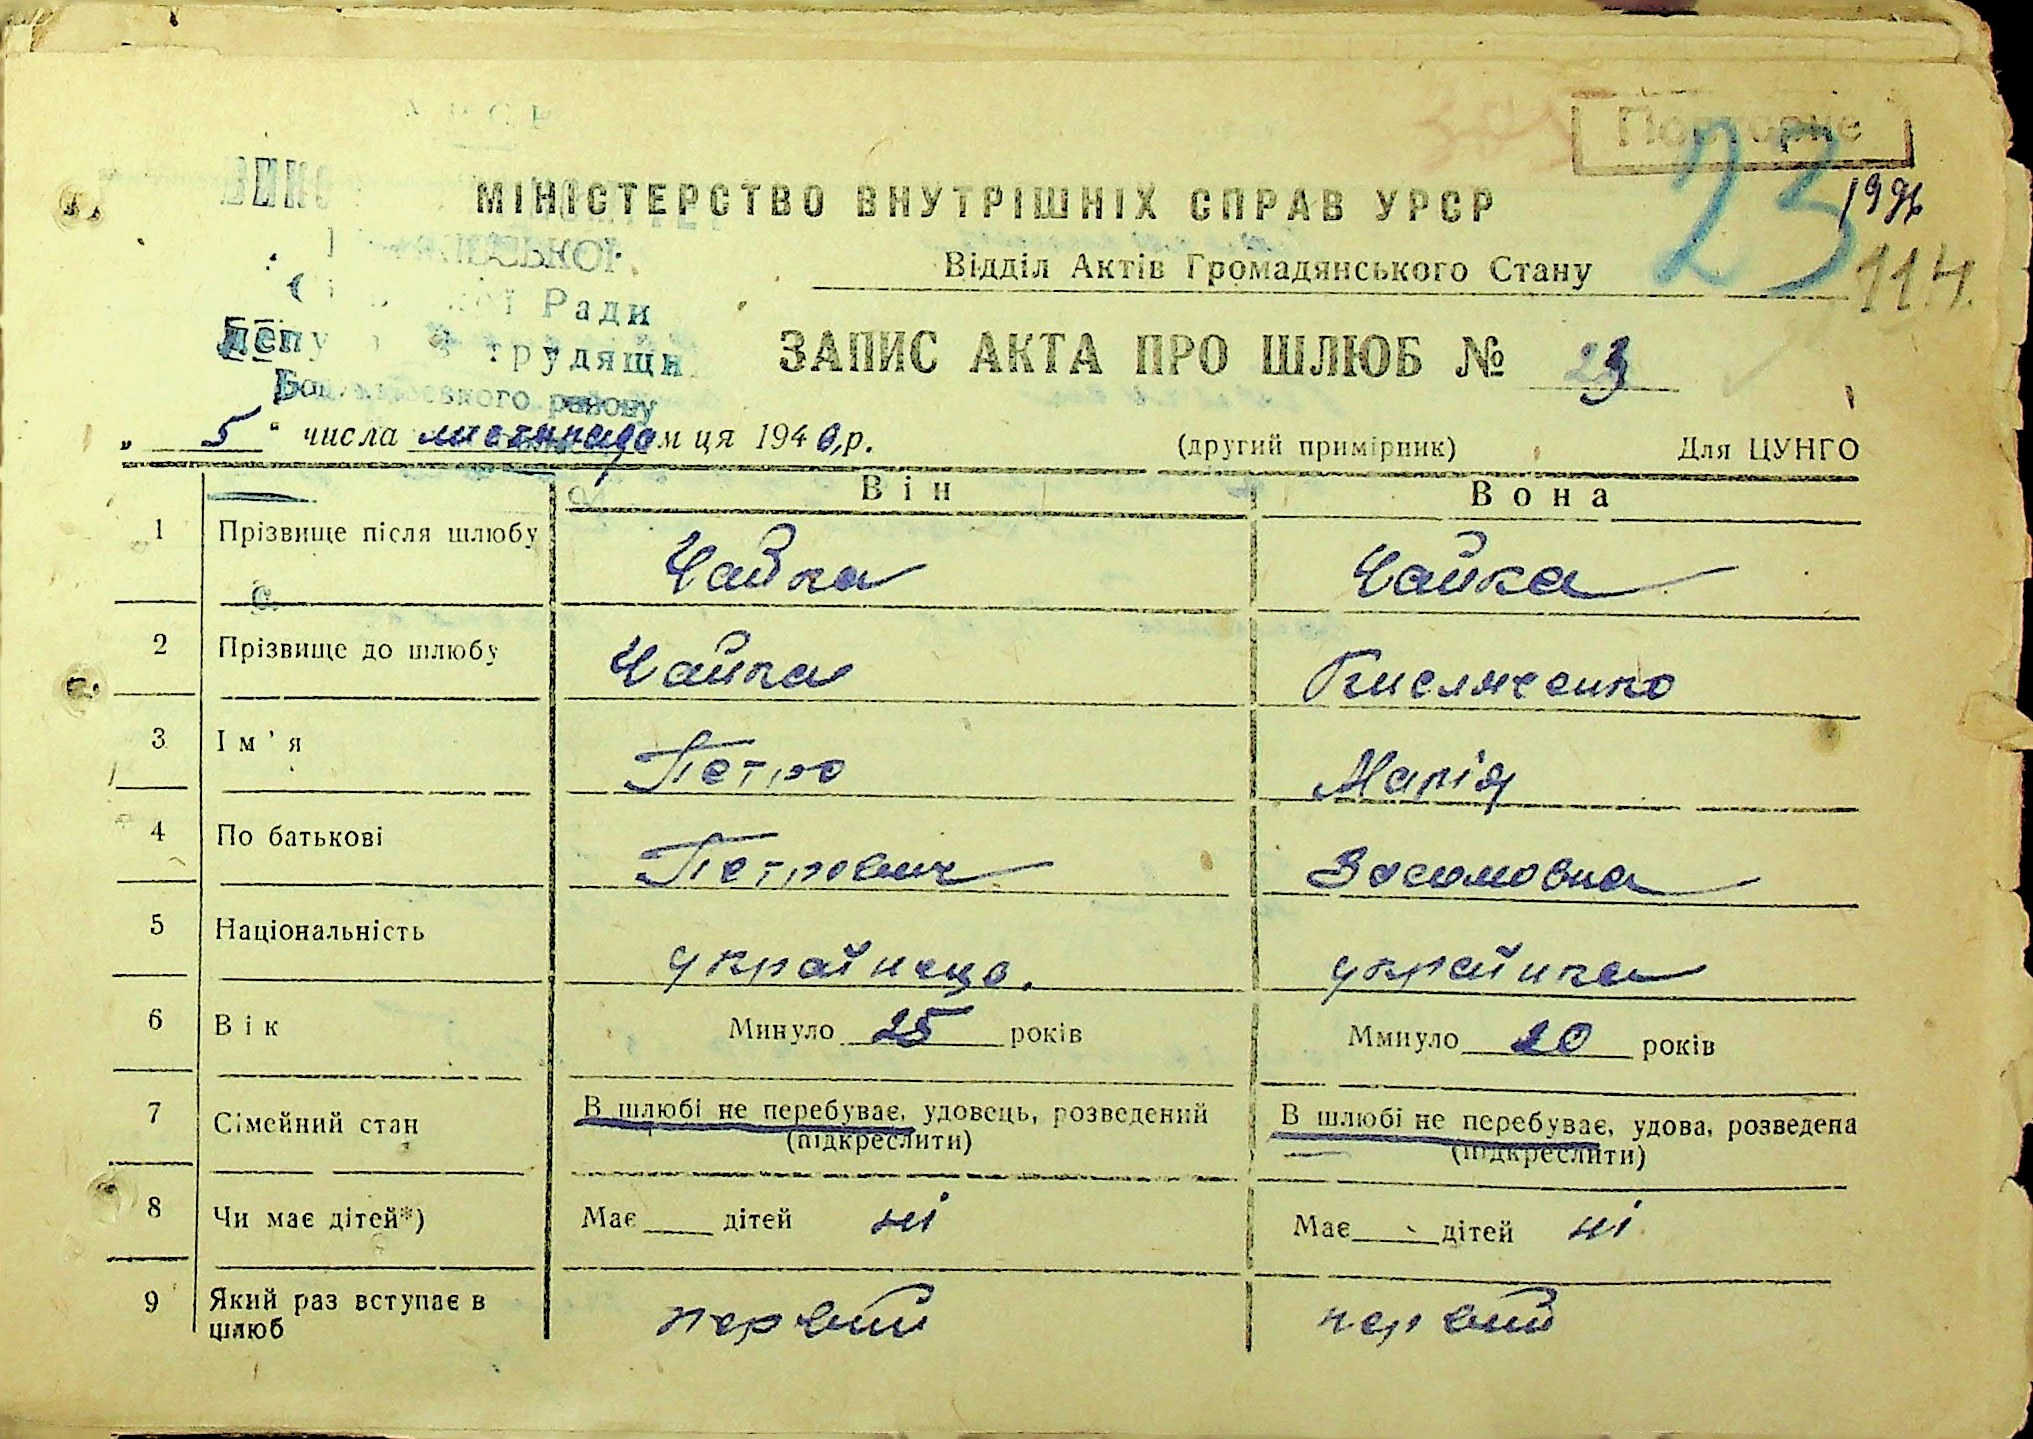 Повторне
23
1996
114.
МІНІСТЕРСТВО ВНУТРІШНІХ СПРАВ УРСР
Відділ Актів Громадянського Стану
Ради
трудящи
району
ЗАПИС АКТА ПРО ШЛЮБ № 23
„ 5 " числа листопада м ця 194 р.
(другий примірник) Для ЦУНГО
Він Вона
1 Прізвище після шлюбу Чайка Чайка
2 Прізвище до шлюбу Чайка
3 Ім'я Петро Марія
4 По батькові Петрович Зосимовна
5 Національність українець. українка
6 Вік Минуло 25 років Ммнуло 20 років
7 Сімейний стан В шлюбі не перебуває, удовець, розведений В шлюбі не перебуває, удова, розведена
(підкреслити) (підкреслити)
8 Чи має дітей*) Має дітей ні Має дітей ні
9 Який раз вступає в первий первий
шлюб